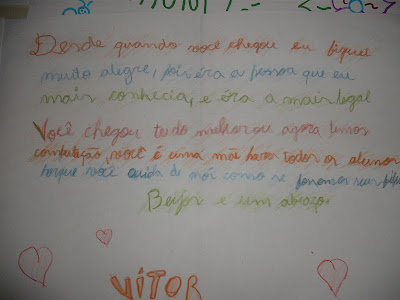 Desde quando você chegou eu fiquei
muito alegre, pois éra a pessoa que eu
mais conhecia, e éra a mais legal
Você chegou tudo melhorou agora temos
computação, você é uma mãe para todos os alunos
porque você cuida de nós como se fossemos seus filhos
Beijos e um abraço
VITOR